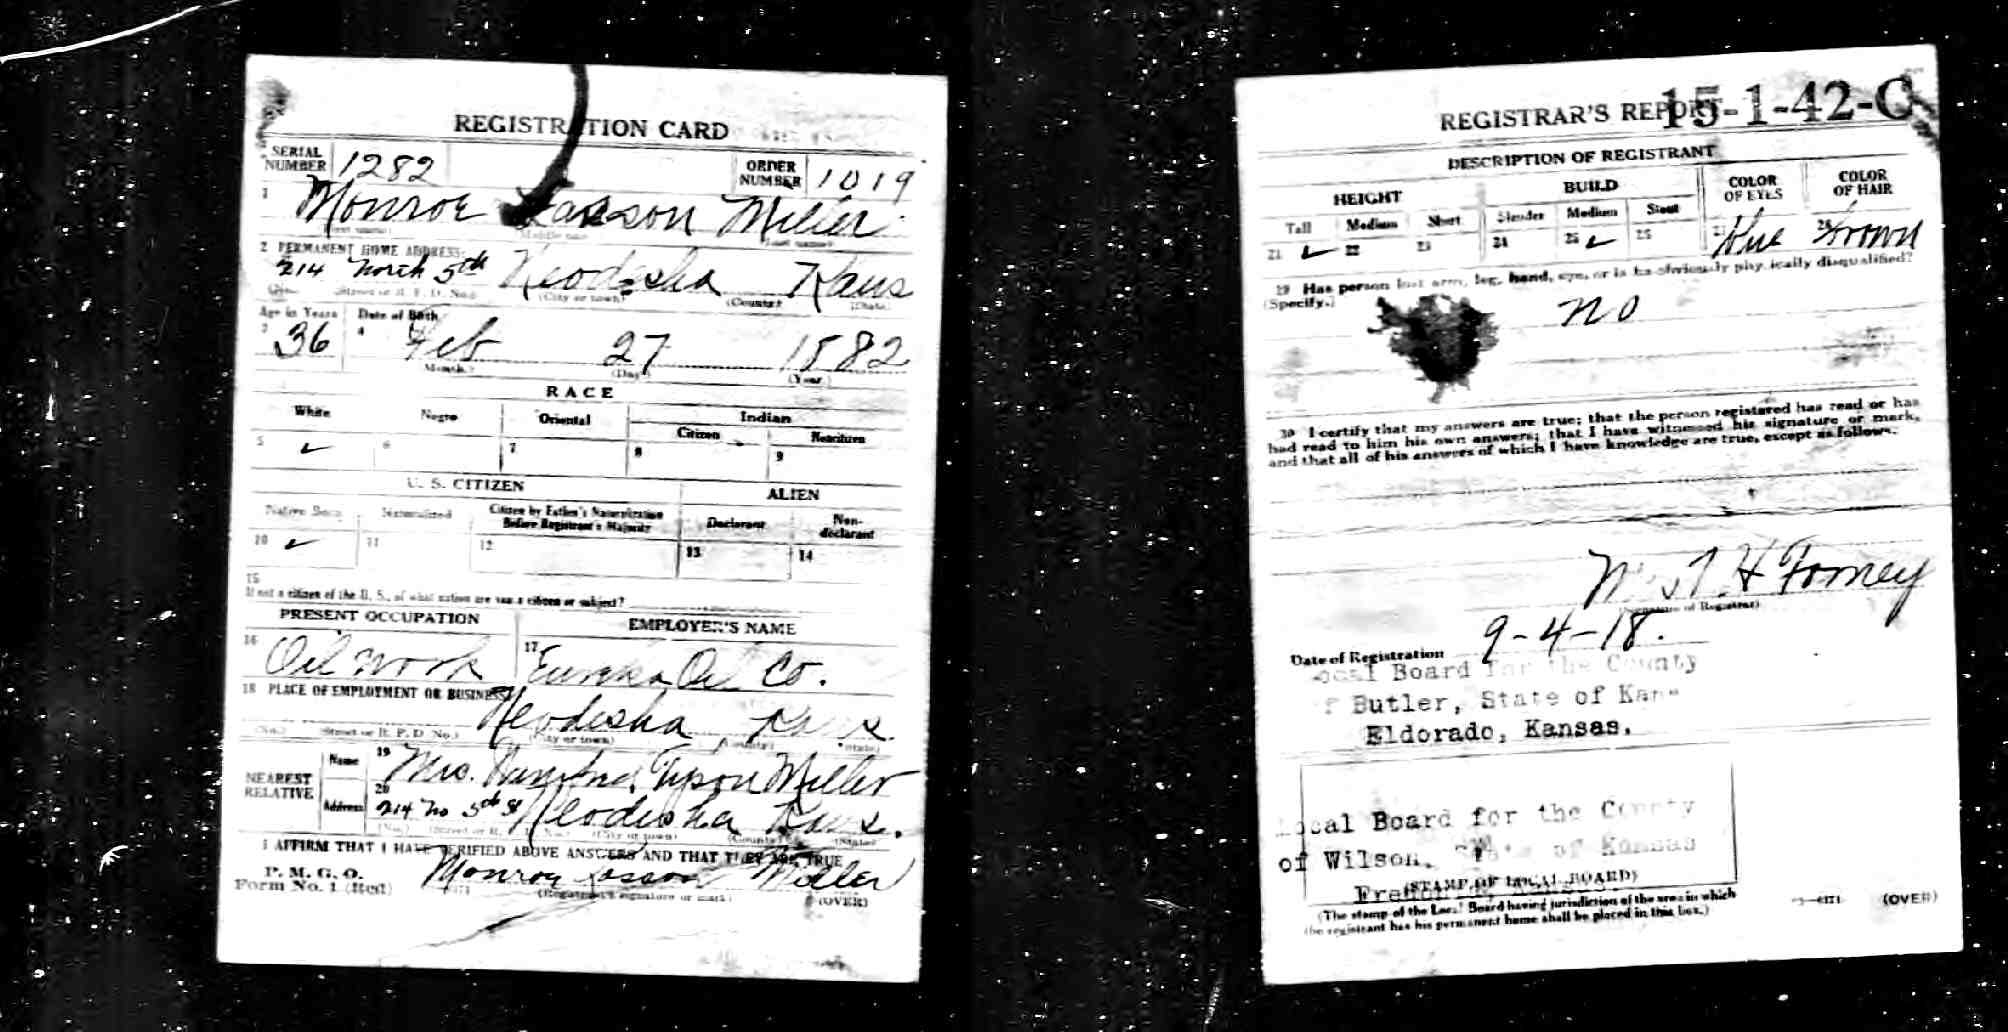 REGISTRATION CARD
SERIAL NUMBER 1282 ORDER NUMBER 1019
1 Monroe Lasson Miller
(First name) (Middle name) (Last name)
2 PERMANENT HOME ADDRESS:
214 North 5th Neodesha Kans
(No.) (Street or R. F. D. No.) (City or town) (County) (State)
Age in Years Date of Birth
3 36 4 Feb 27 1882
(Month.) (Day.) (Year.)
RACE
White Negro Oriental Indian
Citizen Noncitizen
5 ✓ 6 7 8 9
U. S. CITIZEN ALIEN
Native Born Naturalized Citizen by Father's Naturalization Before Registrant's Majority Declarant Non-declarant
10 ✓ 11 12 13 14
15
If not a citizen of the U. S., of what nation are you a citizen or subject?
PRESENT OCCUPATION EMPLOYER'S NAME
16 Oil work 17 Eureka Oil Co.
18 PLACE OF EMPLOYMENT OR BUSINESS:
Neodesha, Kans.
(No.) (Street or R. F. D. No.) (City or town) (County) (State)
NEAREST RELATIVE
Name 19 Mrs. Tyson Miller
Address 20 214 No 5th St Neodesha Kans.
(No.) (Street or R. F. D. No.) (City or town) (County) (State)
I AFFIRM THAT I HAVE VERIFIED ABOVE ANSWERS AND THAT THEY ARE TRUE
P. M. G. O.
Form No. 1 (Red) Monroe Lasson Miller
(Registrant's signature or mark) (OVER)
REGISTRAR'S REPORT 15-1-42-C
DESCRIPTION OF REGISTRANT
HEIGHT BUILD COLOR OF EYES COLOR OF HAIR
Tall Medium Short Slender Medium Stout
21 ✓ 22 23 24 25 ✓ 26 27 Blue 28 Brown
29 Has person lost arm, leg, hand, eye, or is he obviously physically disqualified?
(Specify.) no
30 I certify that my answers are true; that the person registered has read or has
had read to him his own answers; that I have witnessed his signature or mark,
and that all of his answers of which I have knowledge are true, except as follows:
H Forney
(Signature of Registrar)
Date of Registration 9-4-18.
Local Board for the County
of Butler, State of Kans
Eldorado, Kansas.
Local Board for the County
of Wilson, State of Kansas
(STAMP OF LOCAL BOARD)
(The stamp of the Local Board having jurisdiction of the area in which
the registrant has his permanent home shall be placed in this box.)
(OVER)